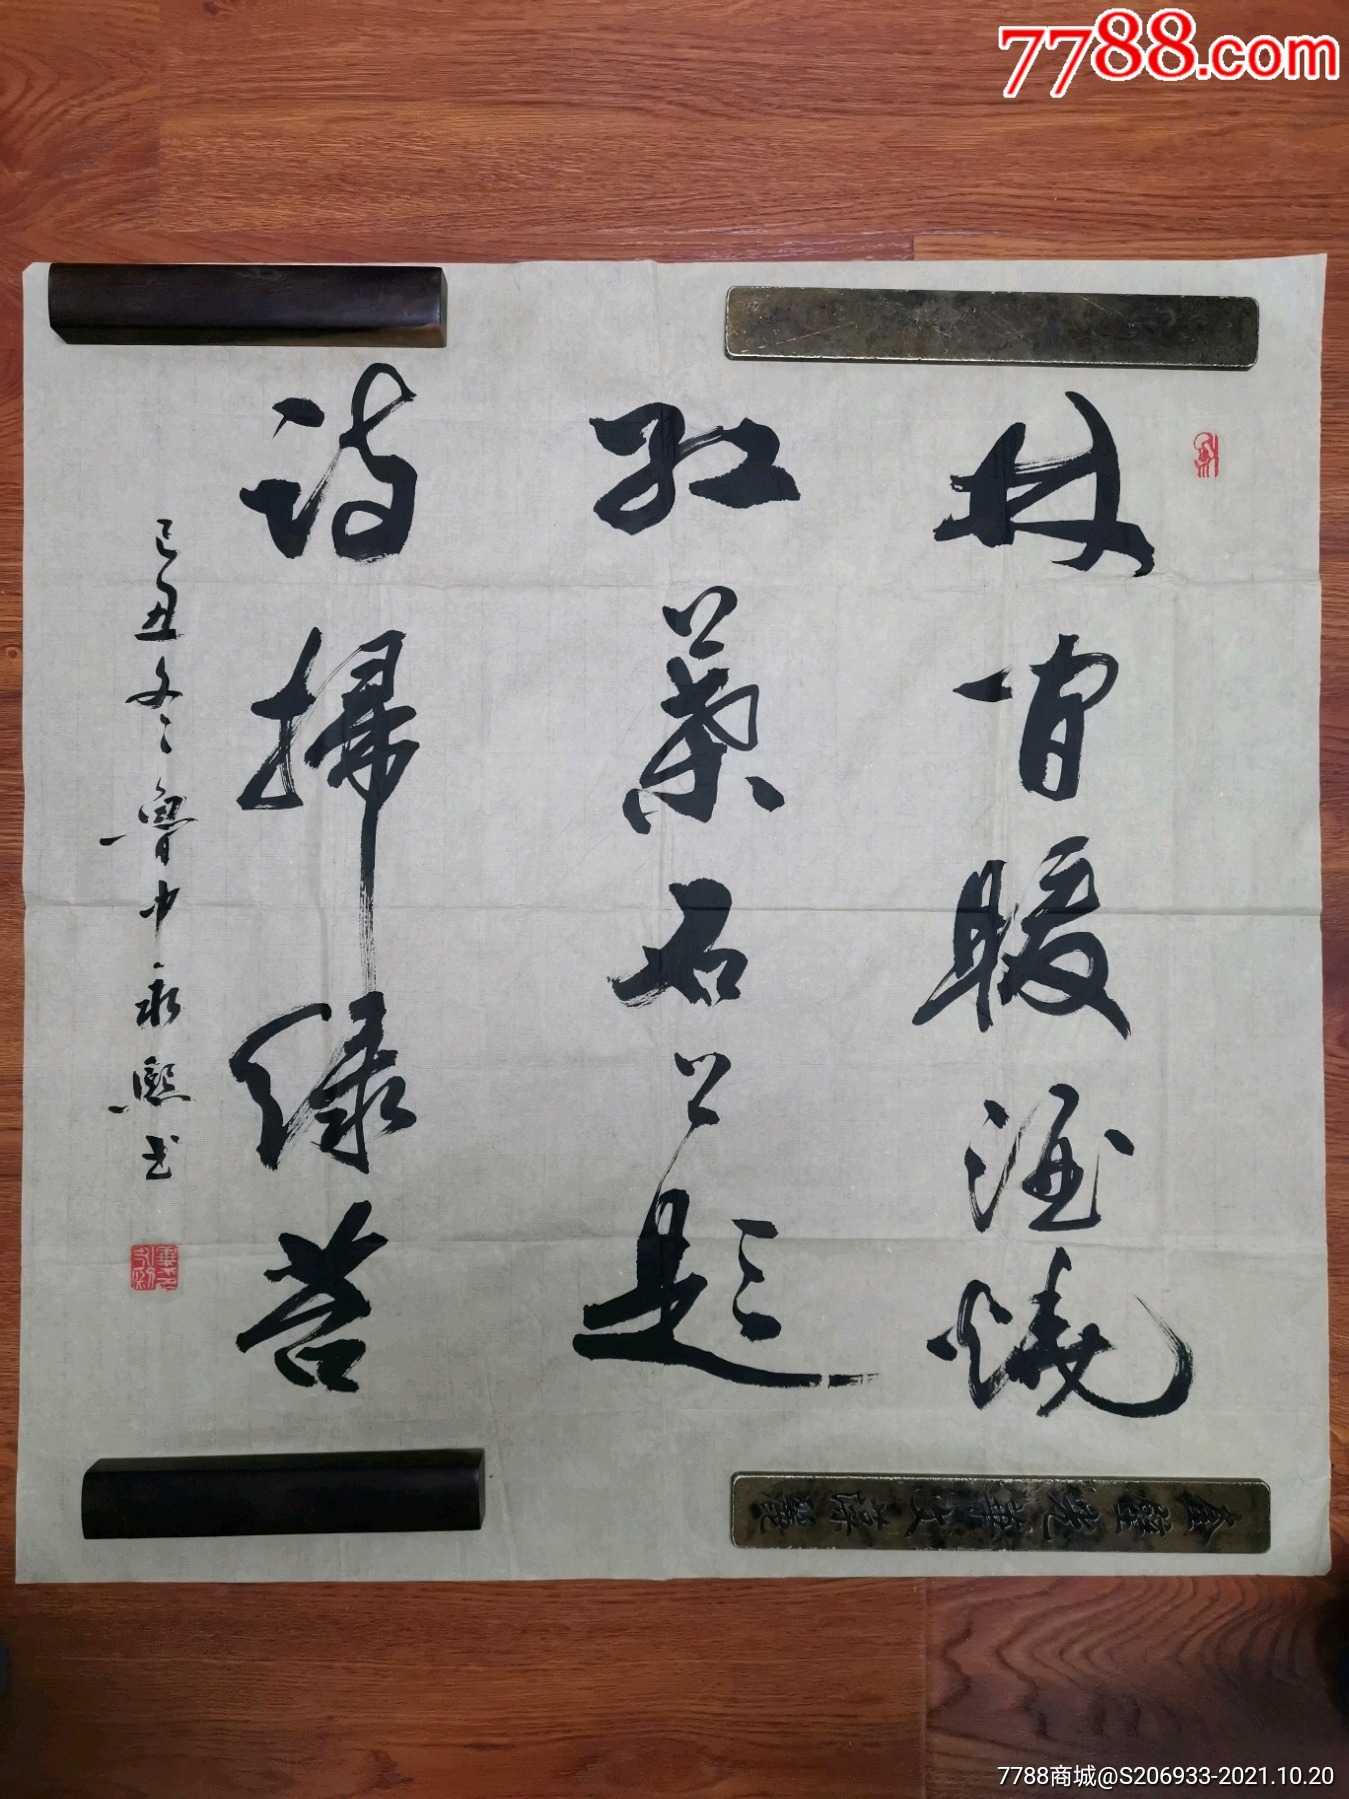 7788.com
林间暖酒燒
红葉石上題
诗掃绿苔
己丑冬魯中永熙书
7788商城@S206933-2021.10.20